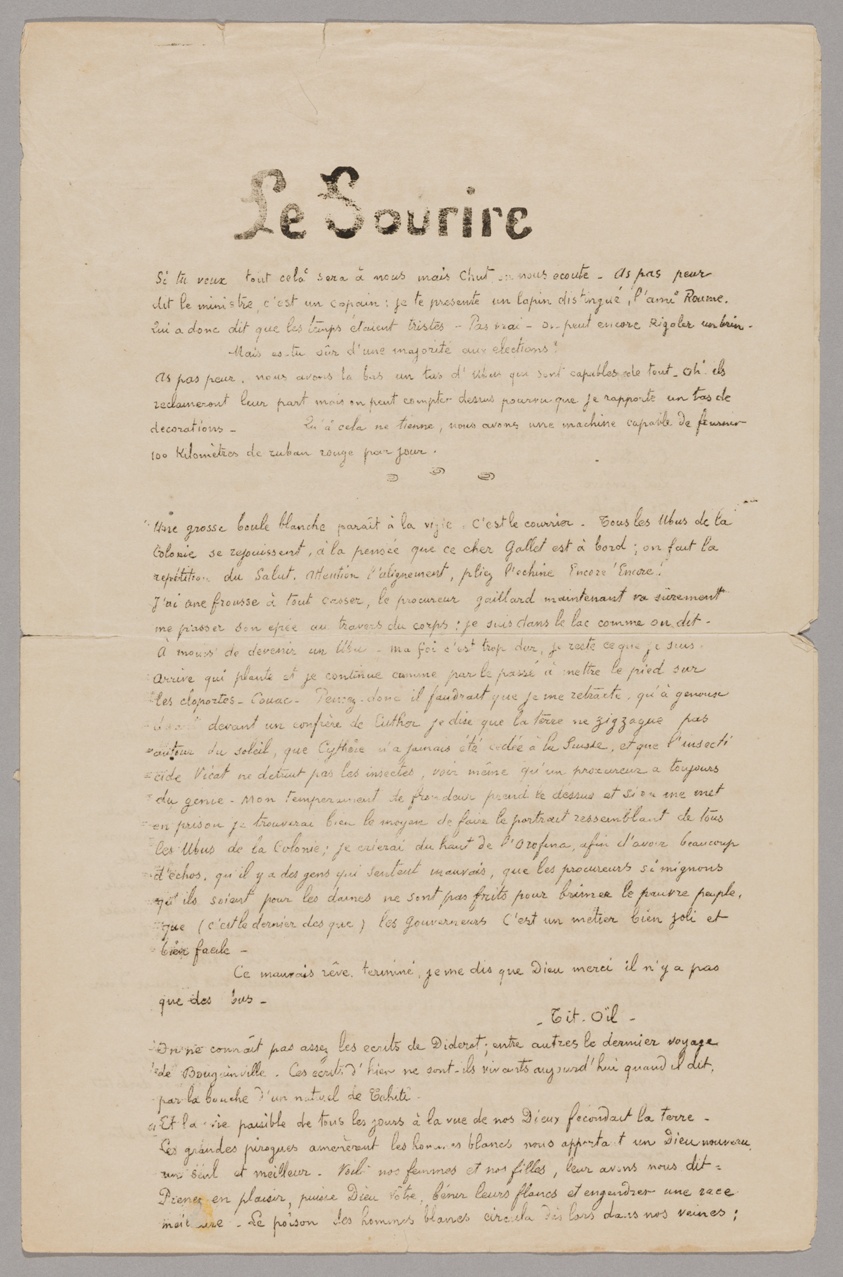 Le Sourire
Si tu veux tout celà sera à nous mais Chut on nous ecoute - As pas peur
dit le ministre, c'est un copain: je te presente un lapin distingué, l'ami Roume.
Qui a donc dit que les temps étaient tristes - Pas vrai - on peut encore Rigoler un brin -
Mais es-tu sûr d'une majorité aux elections!
As pas peur, nous avons là bas un tas d'Ubus qui sont capables de tout - Oh! ils
reclameront leur part mais on peut compter dessus pourvu que je rapporte un tas de
decorations - Qu'à cela ne tienne, nous avons une machine capable de
100 Kilomètres de ruban rouge par jour.
Une grosse boule blanche paraît à la vigie. C'est le courrier - Tous les Ubus de la
Colonie se rejouissent, à la pensée que ce cher Gallet est à bord; on fait la
répétition du Salut. Attention l'alignement, pliez l'echine Encore! Encore!
J'ai une frousse à tout casser, le procureur gaillard maintenant va sûrement
me passer son epée au travers du corps: je suis dans le lac comme on dit -
A moins de devenir un Ubu - ma foi c'est trop dur, je reste ce que je suis.
Arrive qui plante et je continue comme par le passé à mettre le pied sur
les cloportes - Couac - Pensez-donc il faudrait que je me retracte, qu'à genoux
devant un confrère de Luther je dise que la terre ne zigzague pas
autour du soleil, que Cythère n'a jamais été cédée à la Suisse, et que l'insecti
cide Vicat ne detruit pas les insectes, voir même qu'un procureur a toujours
du genie - Mon temperament de frondeur prend le dessus et si on me met
en prison je trouverai bien le moyen de faire le portrait ressemblant de tous
les Ubus de la Colonie; je crierai du haut de l'Orofina, afin d'avoir beaucoup
d'échos, qu'il y a des gens qui sentent mauvais, que les procureurs si mignons
qu'ils soient pour les dames ne sont pas faits pour brimer le pauvre peuple,
que (c'est le dernier des que) les Gouverneurs C'est un métier bien joli et
bien facile -
Ce mauvais rêve, terminé, je me dis que Dieu merci il n'y a pas
que des Ubus -
- Tit-Oïl -
On ne connaît pas assez les ecrits de Diderot; entre autres le dernier voyage
de Bougainville. Ces ecrits d'hier ne sont-ils vivants aujourd'hui quand il dit,
par la bouche d'un naturel de Tahiti.
Et la paisible de tous les jours à la vue de nos Dieux fecondait la terre -
Les grandes pirogues amenèrent les hommes blancs nous apportant un Dieu nouveau,
un seul et meilleur - Voilà nos femmes et nos filles, leur avons nous dit -
Prenez en plaisir, puisse Dieu vôtre, bénir leurs flancs et engendrer une race
meilleure - Le poison des hommes blancs circula dès lors dans nos veines;